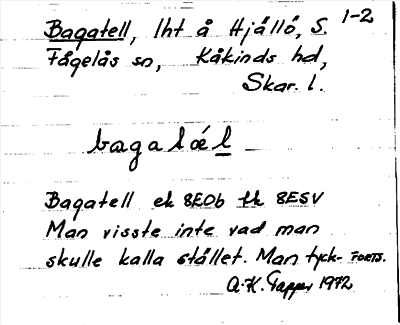 1-2
Bagatell, lht å Hjällö, S.
Fågelås sn, Kåkinds hd,
Skar. l.
bagatǽl
Bagatell ek 8E0b tk 8ESV
Man visste inte vad man
skulle kalla stället. Man tyck- FORTS.
A.K. Tapper 1972